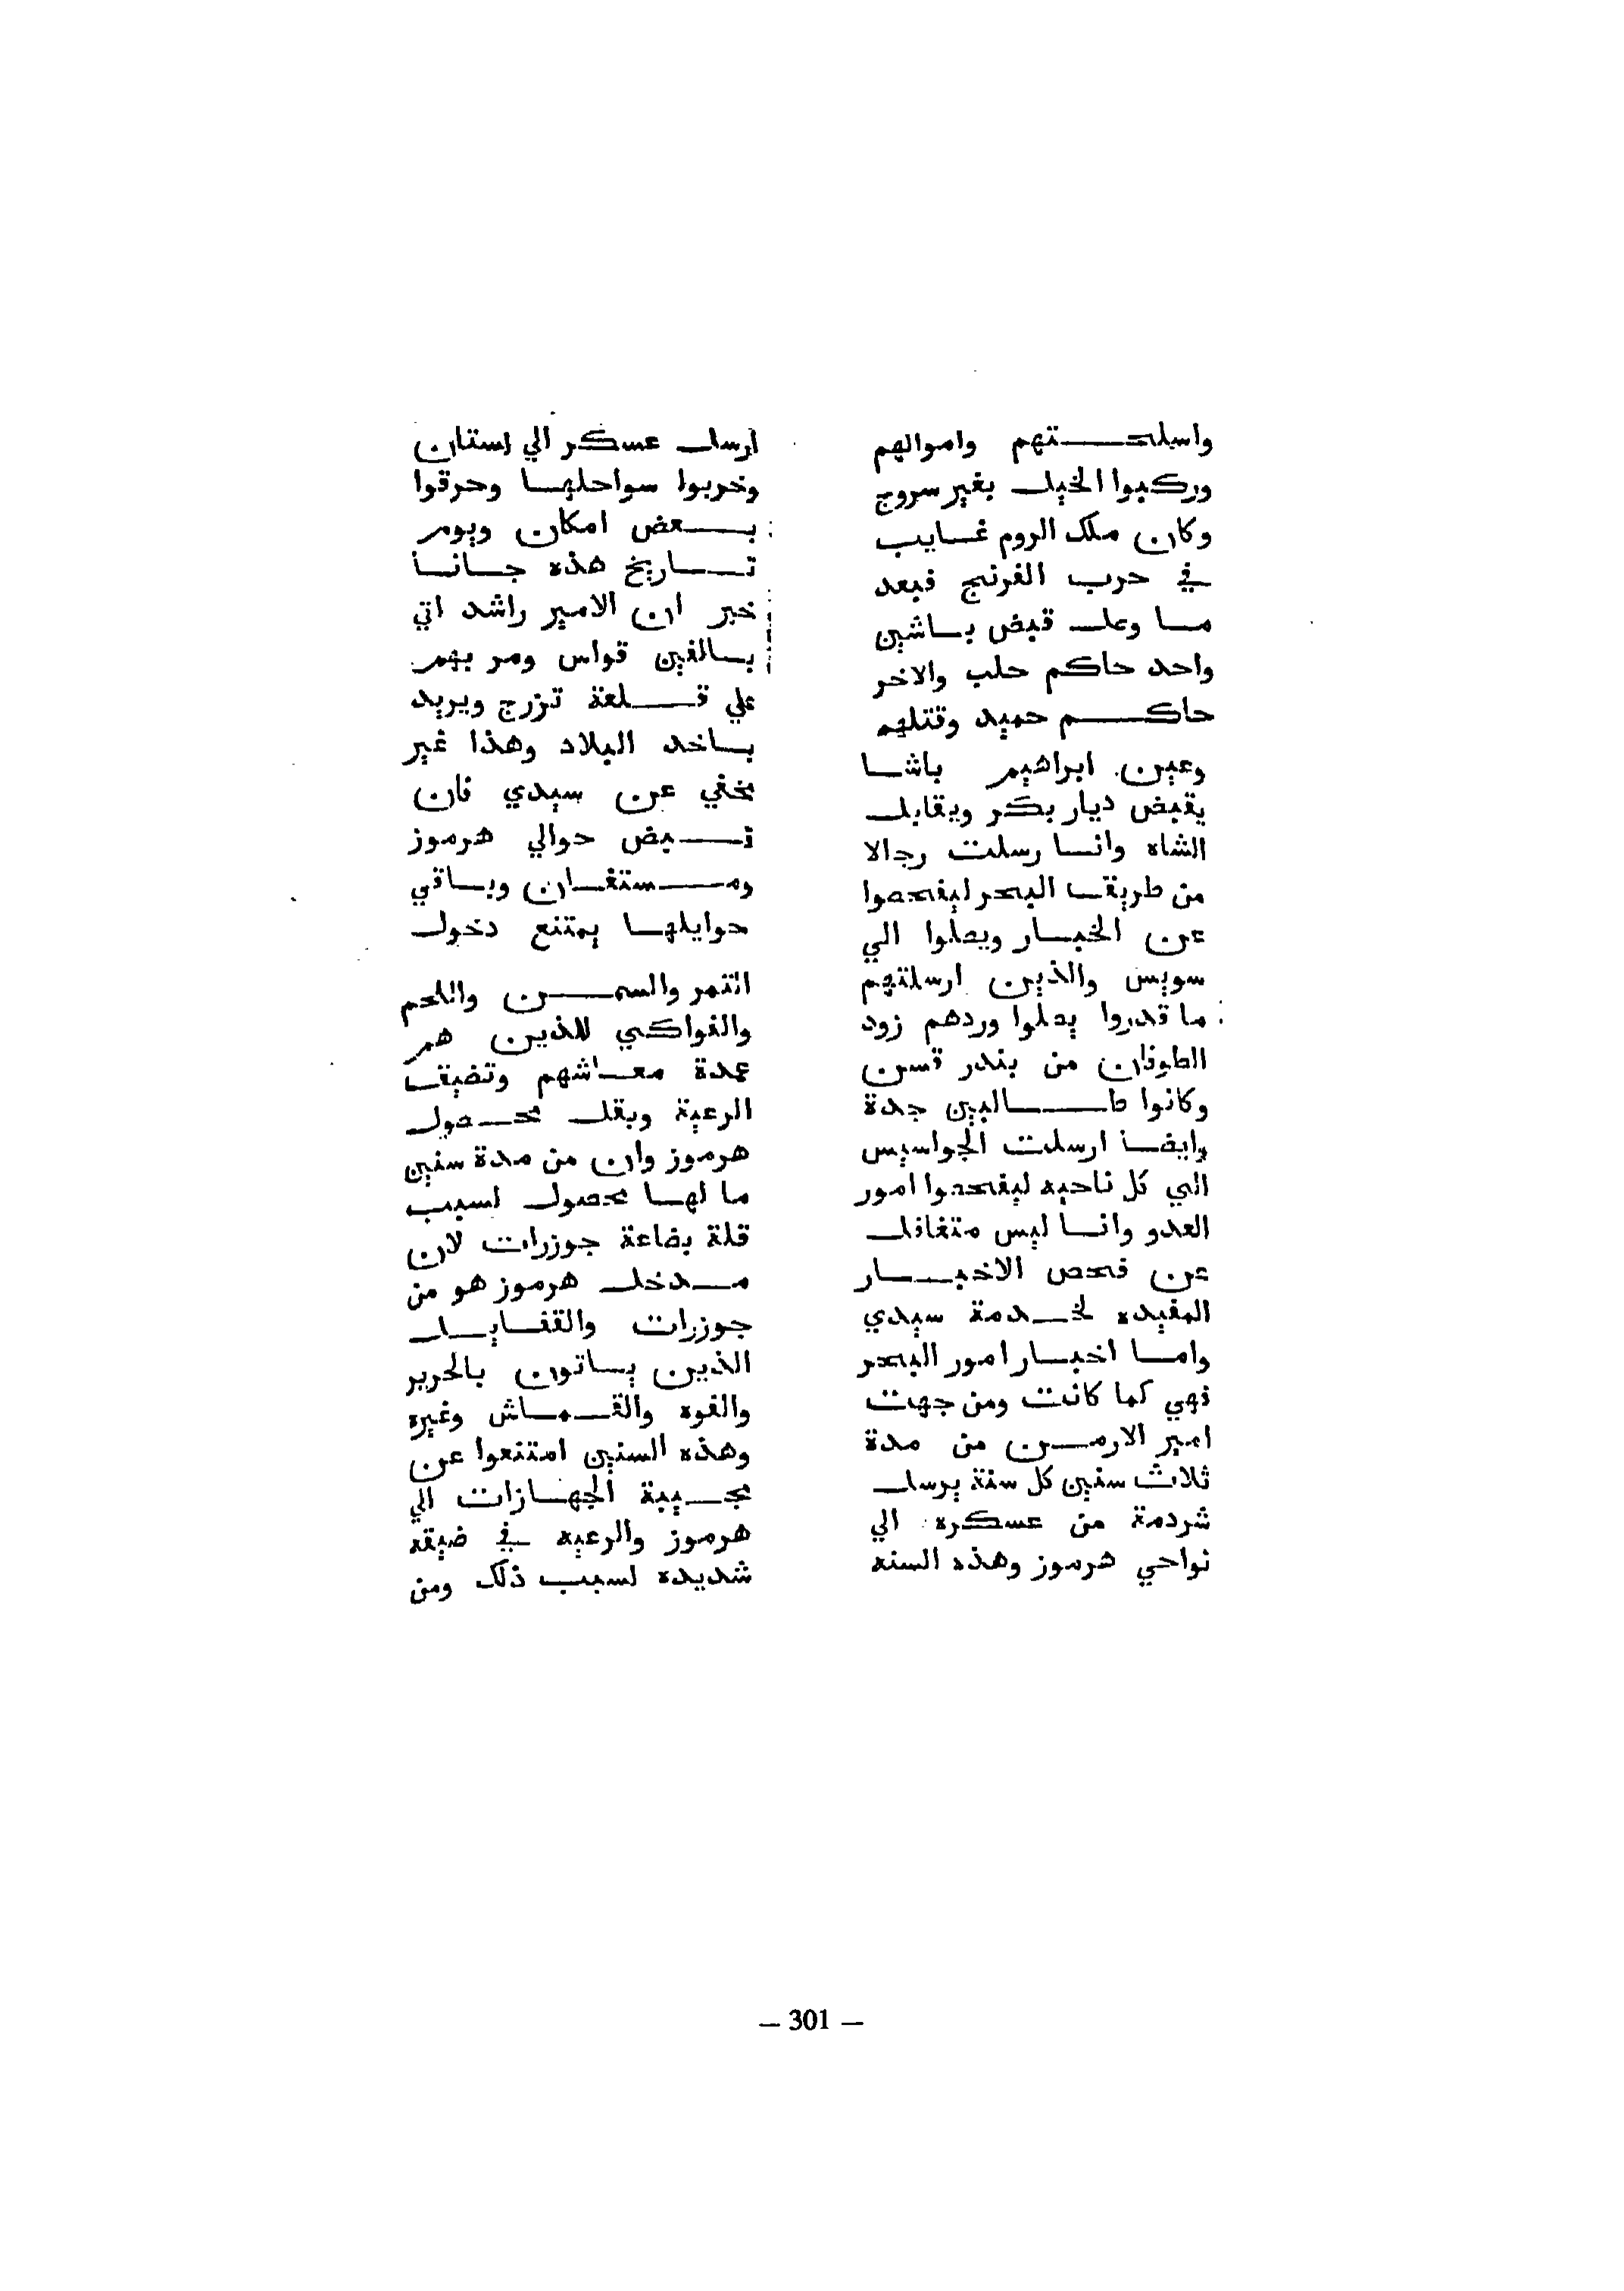 واسلحتهم واموالهم
وركبوا الخيل بغير سروج
وكان ملك الروم غايب
في حرب الفرنج فبعد
ما وعل قبض باشين
واحد حاكم حلب والاخر
حاكم حميد وقتلهم
وعين ابراهيم باشا
يقبض ديار بكر ويقابل
الشاه وانا رسلت رجالا
من طريق البحر ليفحصوا
عن الخبار ويصلوا الي
سويس والذين ارسلتهم
ما قدروا يصلوا وردهم زود
الطوفان من بندر قسن
وكانوا طالبين جدة
وايضا ارسلت الجواسيس
الي كل ناحيه ليفحصوا امور
العدو وانا ليس متغافل
عن فحص الاخبار
المفيده لخدمة سيدي
واما اخبار امور البحر
فهي كما كانت ومن جهت
امير الارمن من مدة
ثلاث سنين كل سنة يرسل
شردمة من عسكره الي
نواحي هرموز وهذه السنه
ارسل عسكر الي لستان
وخربوا سواحلها وحرقوا
بعض امكان ويوم
تاريخ هذه جانا
خبر ان الامير راشد اتي
بالفين قواس ومر بهم
علي قلعة تزرج ويريد
ياخد البلاد وهذا غير
يخفي عن سيدي فان
قبض حوالي هرموز
ومستغان وباقي
حوايلها يمتنع دخول
التمر والسمن واللحم
والفواكي للذين هم
عمدة معاشهم وتضيق
الرعية ويقل محصول
هرموز وان من مدة سنين
ما لها محصول لسبب
قلة بضاعة جوزرات لان
مدخل هرموز هو من
جوزرات والقفايل
الذين ياتون بالحرير
والفوه والقماش وغيره
وهذه السنين امتنعوا عن
مجيبة الجهازات الي
هرموز والرعيه في ضيقه
شديده لسبب ذلك ومن
— 301 —